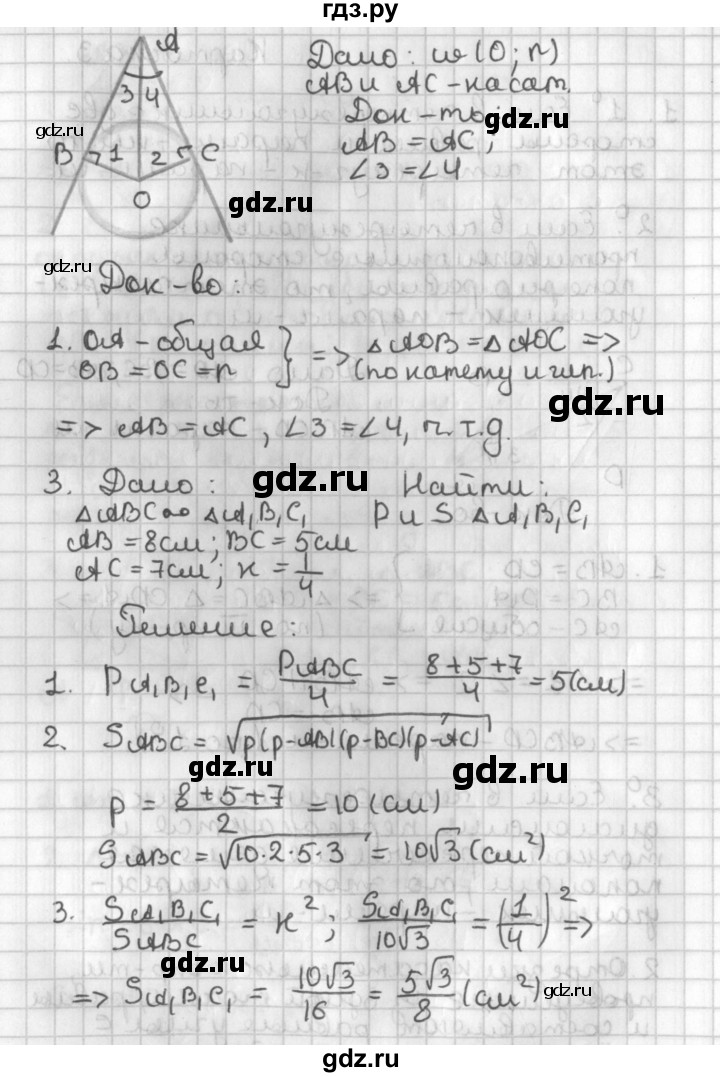 гдз.ру
A
Дано: w (O; r)
AB и AC – касат.
3 4
Док-ть:
gdz.ru
gdz.ru
AB = AC;
B 1 2 C
∠3 = ∠4
O
gdz.ru
gdz.ru
Док-во:
1. OA – общая
OB = OC = r } => △AOB = △AOC =>
(по катету и гип.)
gdz.ru
=> AB = AC, ∠3 = ∠4, ч.т.д.
3. Дано: gdz.ru Найти:
△ABC ∾ △A₁B₁C₁ P и S △A₁B₁C₁
AB = 8см; BC = 5см
AC = 7см; к = 1/4
Решение:
1. P A₁B₁C₁ = P ABC/4 = (8+5+7)/4 = 5(см)
2. S ABC = √(p(p-AB)(p-BC)(p-AC))
gdz.ru
gdz.ru
p = (8+5+7)/2 = 10 (см)
S ABC = √(10·2·5·3) = 10√3 (см²)
3. S A₁B₁C₁/S ABC = к²; S A₁B₁C₁/10√3 = (1/4)² =>
gdz.ru
=> S A₁B₁C₁ = 10√3/16 = 5√3/8 (см²)
gdz.ru
gdz.ru